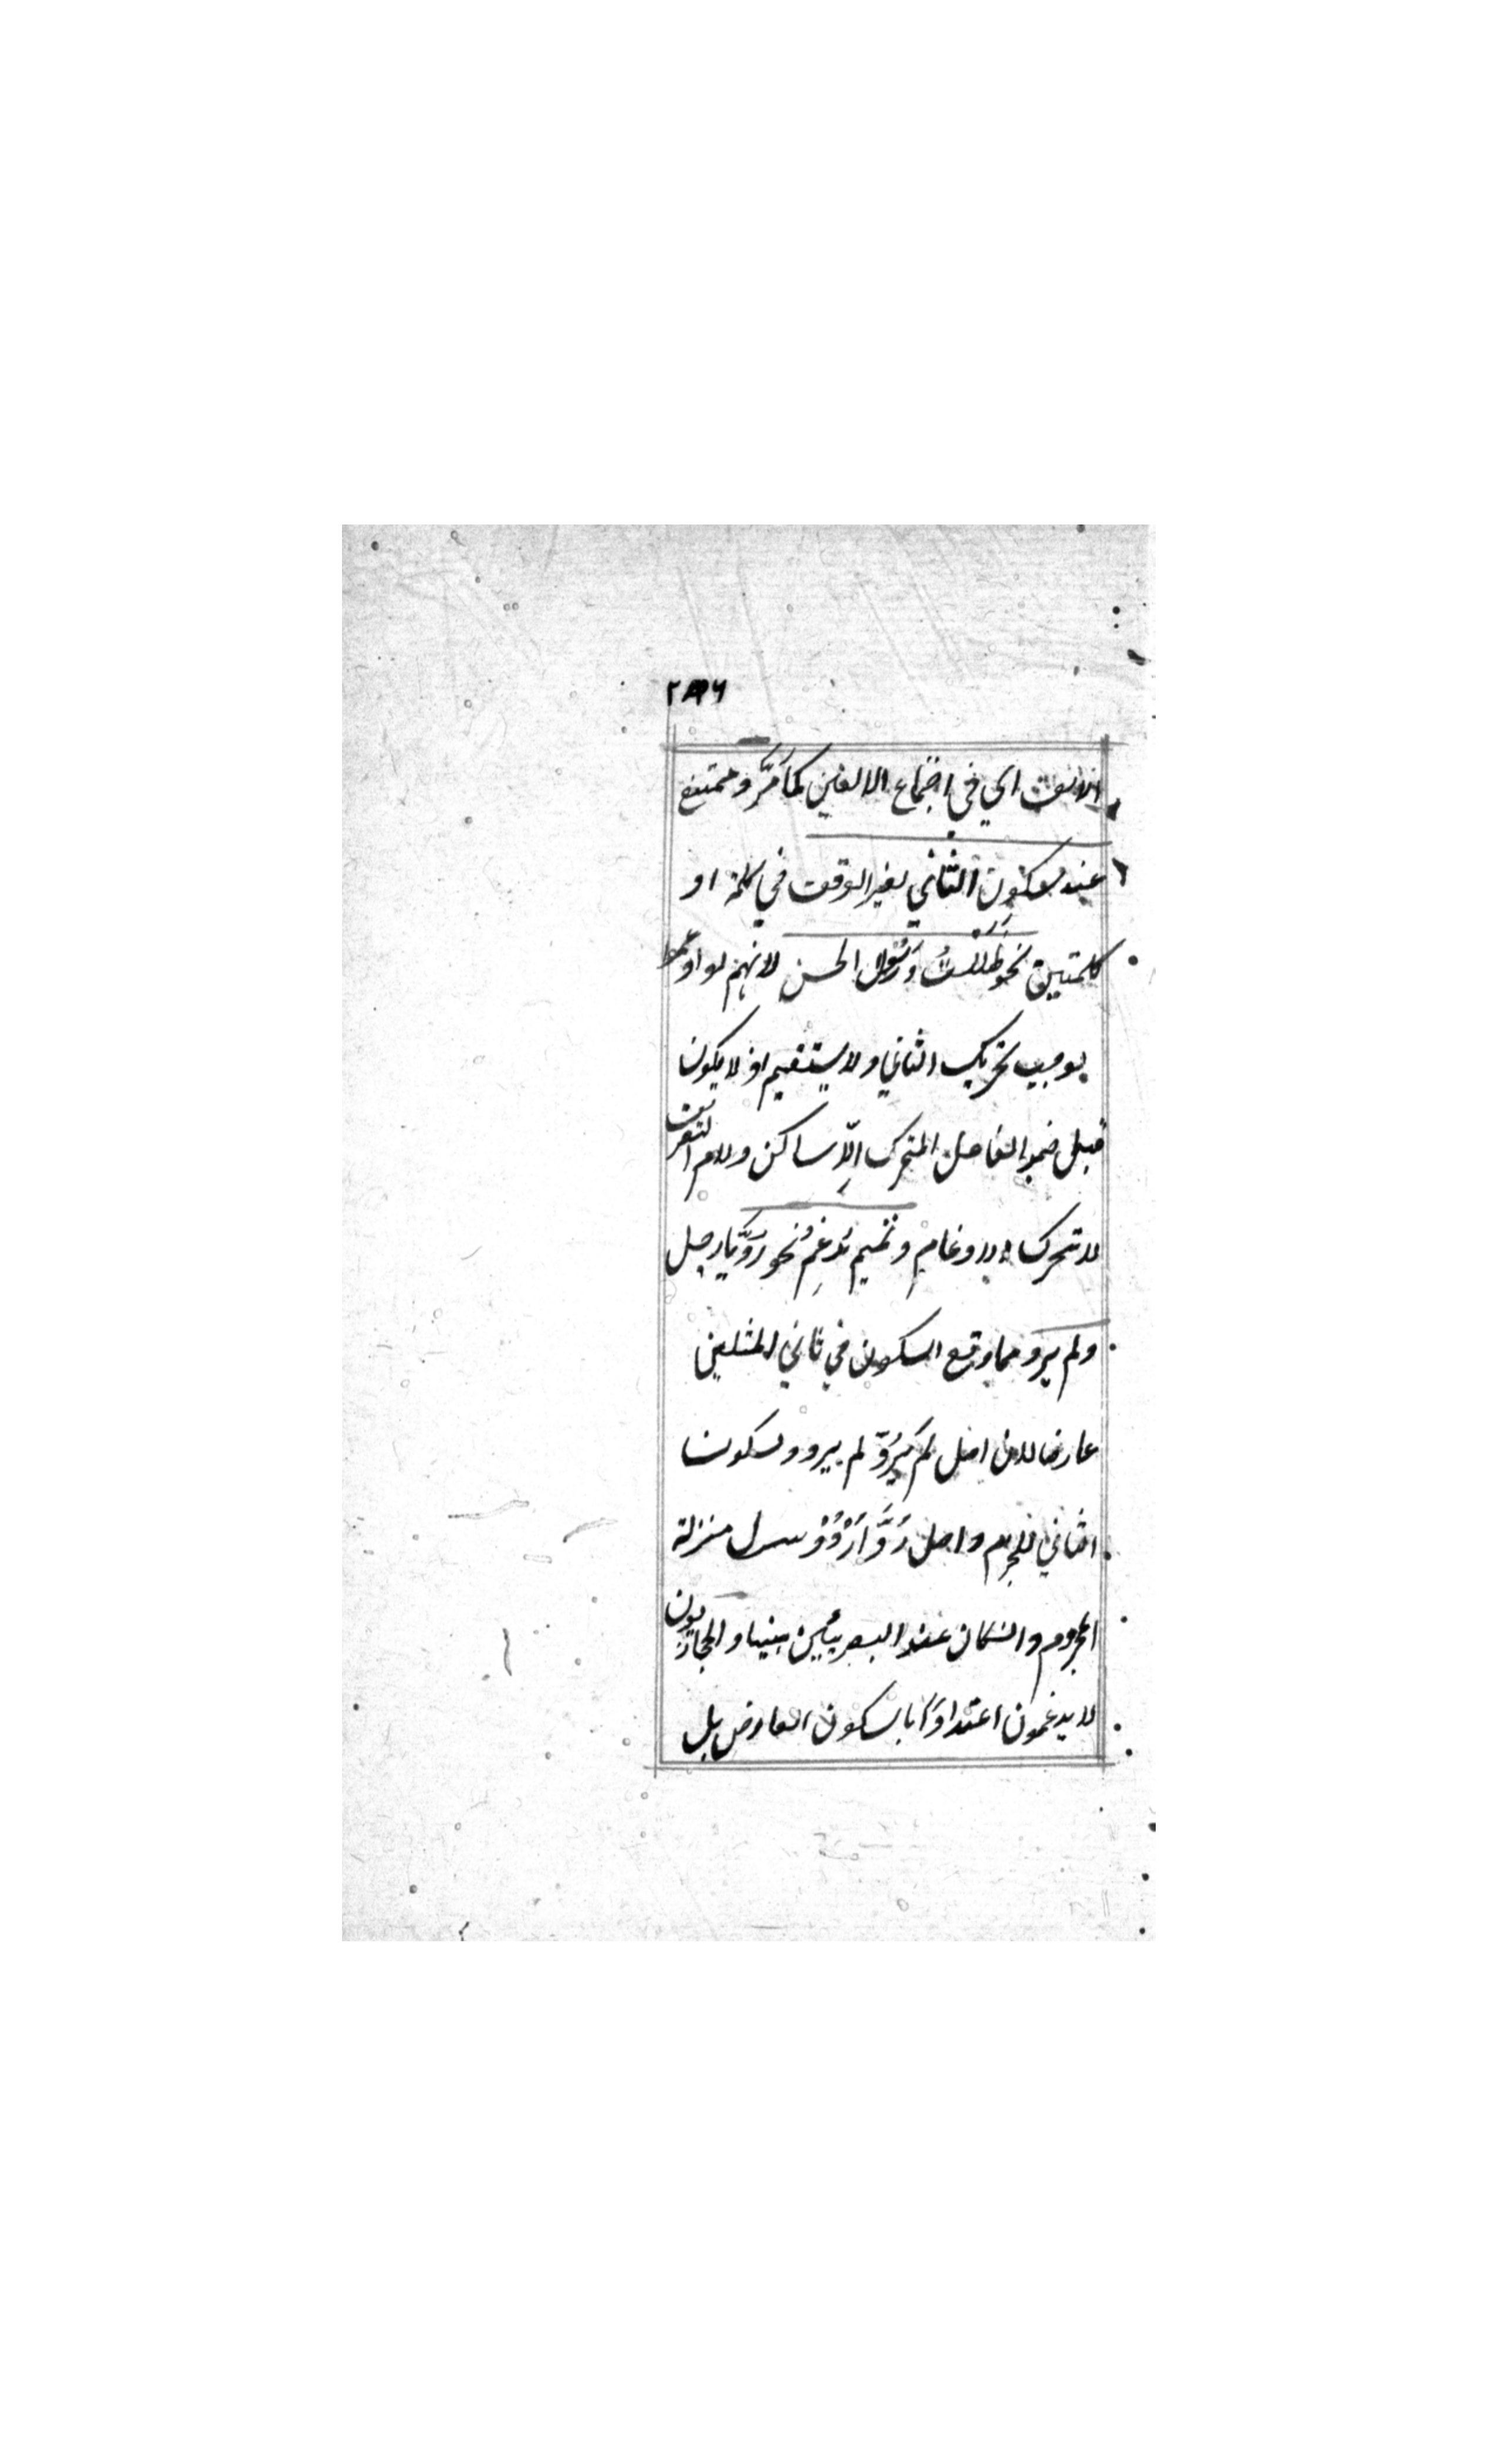 الالف اي في اجتماع الالفين كما مَرَّ وممتنع
عند سكون الثاني لغير الوقف في كلمة او
كلمتين نحو ظَلَلْتُ وَرَسُولُ الحسن لانهم لو ادغموا
يوجب تحريك الثاني ولا يستقيم اذ لا يكون
قبل ضمير الفاعل المتحرك اِلّا ساكن ولام التعريف
لا تتحرك للادغام وتميم تُدْغِمُ نحو رُدَّ يا رجل
ولم يرد مما وقع السكون في ثاني المثلين
عارضا لان اصل لَمْ يَرُدَّ لم يردد وسكون
الثاني للجزم واصل رُدَّ اُرْدُدْ منزلة
المجزوم وان كان عند البصريين مبنيا والحجازيون
لا يدغمون اعتدادًا بالسكون العارض بل